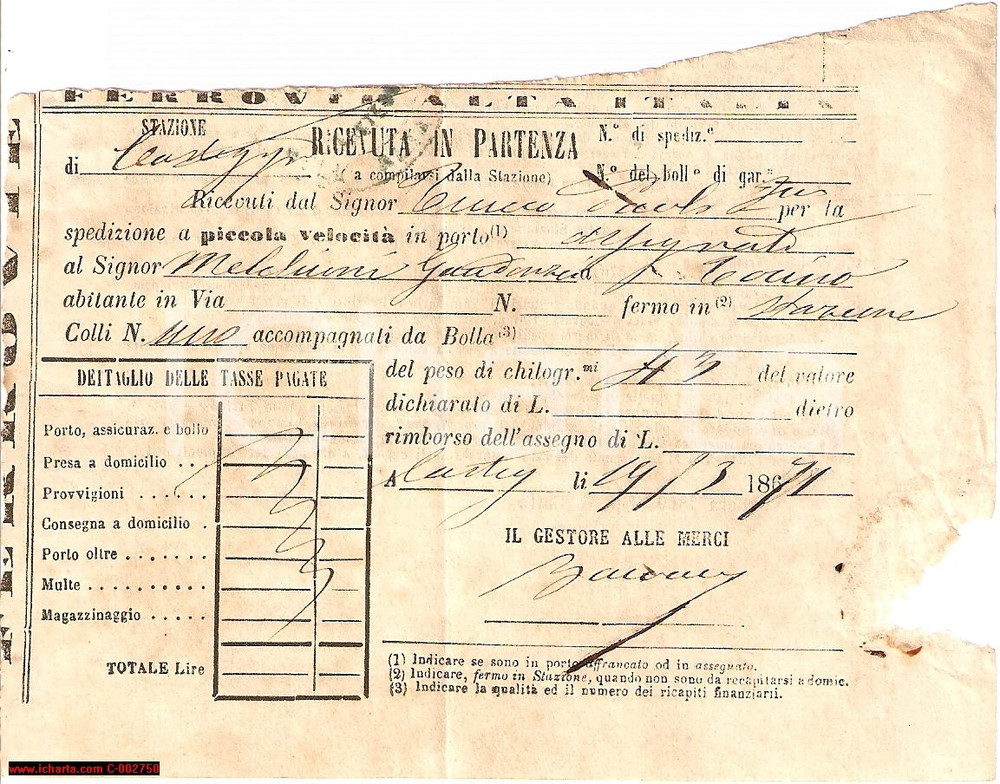 FERROVIE ALTA ITALIA
STAZIONE
RICEVUTA IN PARTENZA
N.º di spediz.e
di Casteggio
(a compilarsi dalla Stazione)
N.º del boll.º di gar.ª
Ricevuti dal Signor per la
spedizione a piccola velocità in porto(1) assegnato
al Signor Melchioni Gaudenzio a Torino
abitante in Via N. fermo in(2) stazione
Colli N. uno accompagnati da Bolla(3)
DETTAGLIO DELLE TASSE PAGATE
Porto, assicuraz. e bollo
Presa a domicilio . . .
Provvigioni . . . . . .
Consegna a domicilio .
Porto oltre . . . . . . .
Multe . . . . . . . . . .
Magazzinaggio . . . . .
TOTALE Lire
del peso di chilogr.mi 43 del valore
dichiarato di L. dietro
rimborso dell'assegno di L.
A Casteg li 19/3 1871
IL GESTORE ALLE MERCI
(1) Indicare se sono in porto affrancato od in assegnato.
(2) Indicare, fermo in Stazione, quando non sono da recapitarsi a domic.
(3) Indicare la qualità ed il numero dei ricapiti finanziarii.
FERROVIE
www.icharta.com C-002750